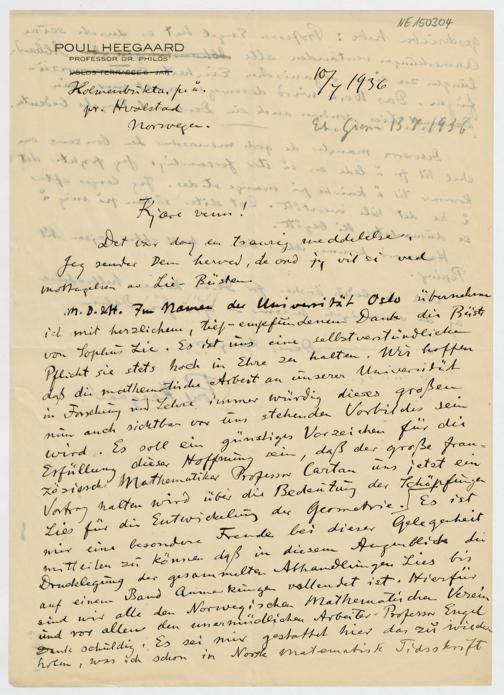 NE 150304
POUL HEEGAARD
PROFESSOR DR. PHILOS
Holmenbukta, p.å.
pr. Hvalstad
Norwegen.
10/7 1936
13.7.1936
Kjære venn!
Det var dog en trauerig meddelelse.
Jeg sender Dem herved, de ord jeg vil si ved
mottagelsen av Lie-Büsten.
M.D.u.H. Im Namen der Universität Oslo übernehme
ich mit herzlichem, tief-empfundenem Dank die Büste
von Sophus Lie. Es ist uns eine selbstverständliche
Pflicht sie stets hoch in Ehre zu halten. Wir hoffen
daß die mathematische Arbeit an unserer Universität
in Forschung und Lehre immer würdig dieses großen
nun auch sichtbar vor uns stehenden Vorbildes sein
wird. Es soll ein günstiges Vorzeichen für die
Erfüllung dieser Hoffnung sein, daß der große fran-
zösische Mathematiker Professor Cartan uns jetzt ein
Vortrag halten wird über die Bedeutung der Schöpfungen
Lies für die Entwickelung der Geometrie. Es ist
mir eine besondere Freude bei dieser Gelegenheit
mitteilen zu können daß in diesem Augenblicke die
Drucklegung der gesammelten Abhandlungen Lies bis
auf einem Band Anmerkungen vollendet ist. Hierfür
sind wir alle den Norwegischen Mathematischen Verein
und vor allem den unermüdlichen Arbeiter Professor Engel
Dank schuldig. Es sei mir gestattet hier das zu wieder
holen, was ich schon in Norsk matematisk Tidsskrift